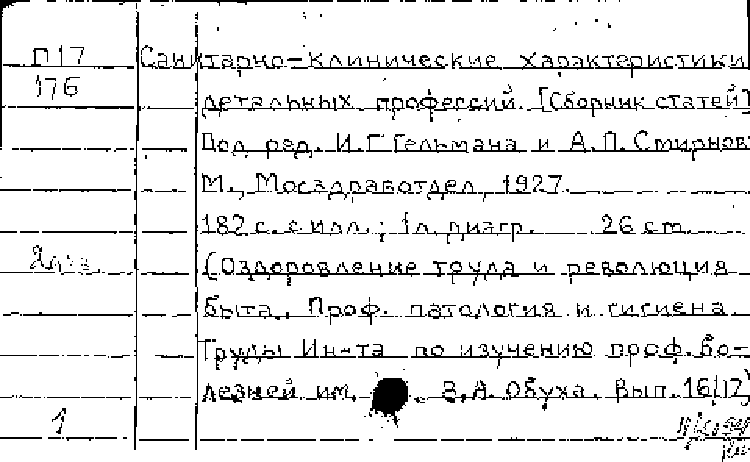 П17 Санитарно-клинические характеристики
176 детальных профессий. [Сборник статей]
Под ред. И.Г Гельмана и А.П. Смирнов
М., Мосздравотдел, 1927.
182 с. с илл.; 1 л. диагр. 26 cm.
(Оздоровление труда и революция
быта. Проф. патология и гигиена.
Труды Ин-та по изучению проф. бо-
лезней им. В.А. Обуха. Вып. 16/17)
1